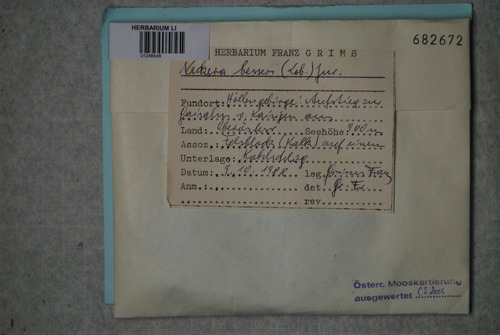 HERBARIUM LI
682672
HERBARIUM FRANZ GRIMS
Neckera besseri (Lob.) Jur.
Fundort: Höllengebirge: Aufstieg zu
Land: Oberösterr. Seehöhe: 900 m
Assoz.: Felsblock (Kalk) auf einem
Unterlage:
Datum: 9.10.1988 leg. Grims Franz
Anm.: det. Gr. Fr.
rev.
Österr. Mooskartierung
ausgewertet